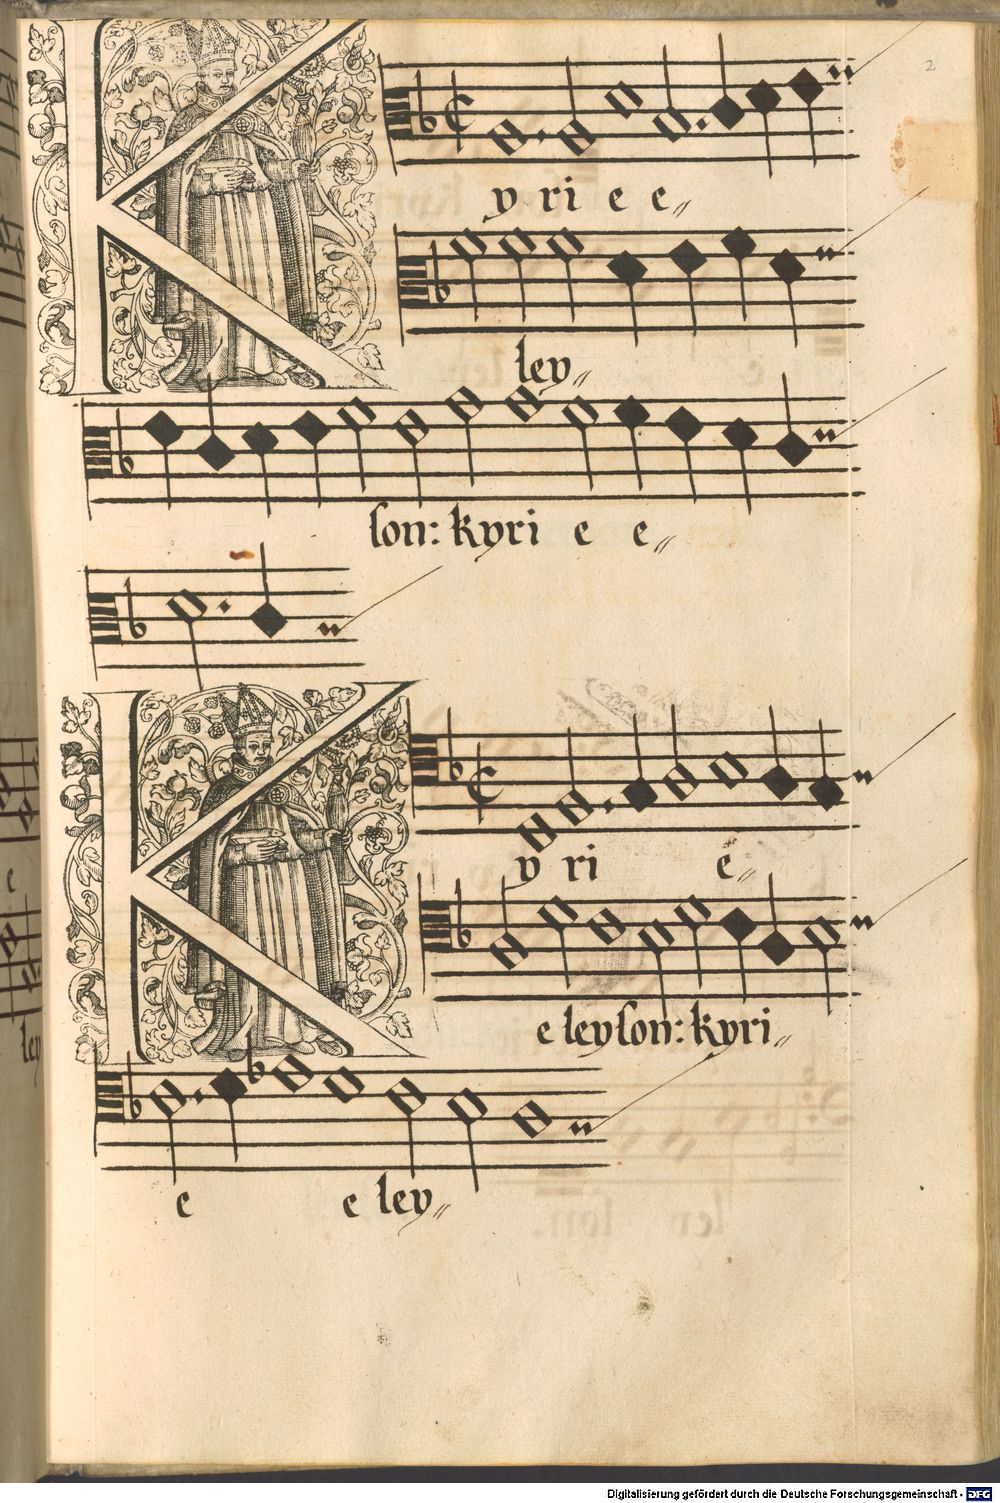 2
Kyri e e
ley
son: kyri e e
Kyri e
e leyson: kyri
e e ley
Digitalisierung gefördert durch die Deutsche Forschungsgemeinschaft - DFG